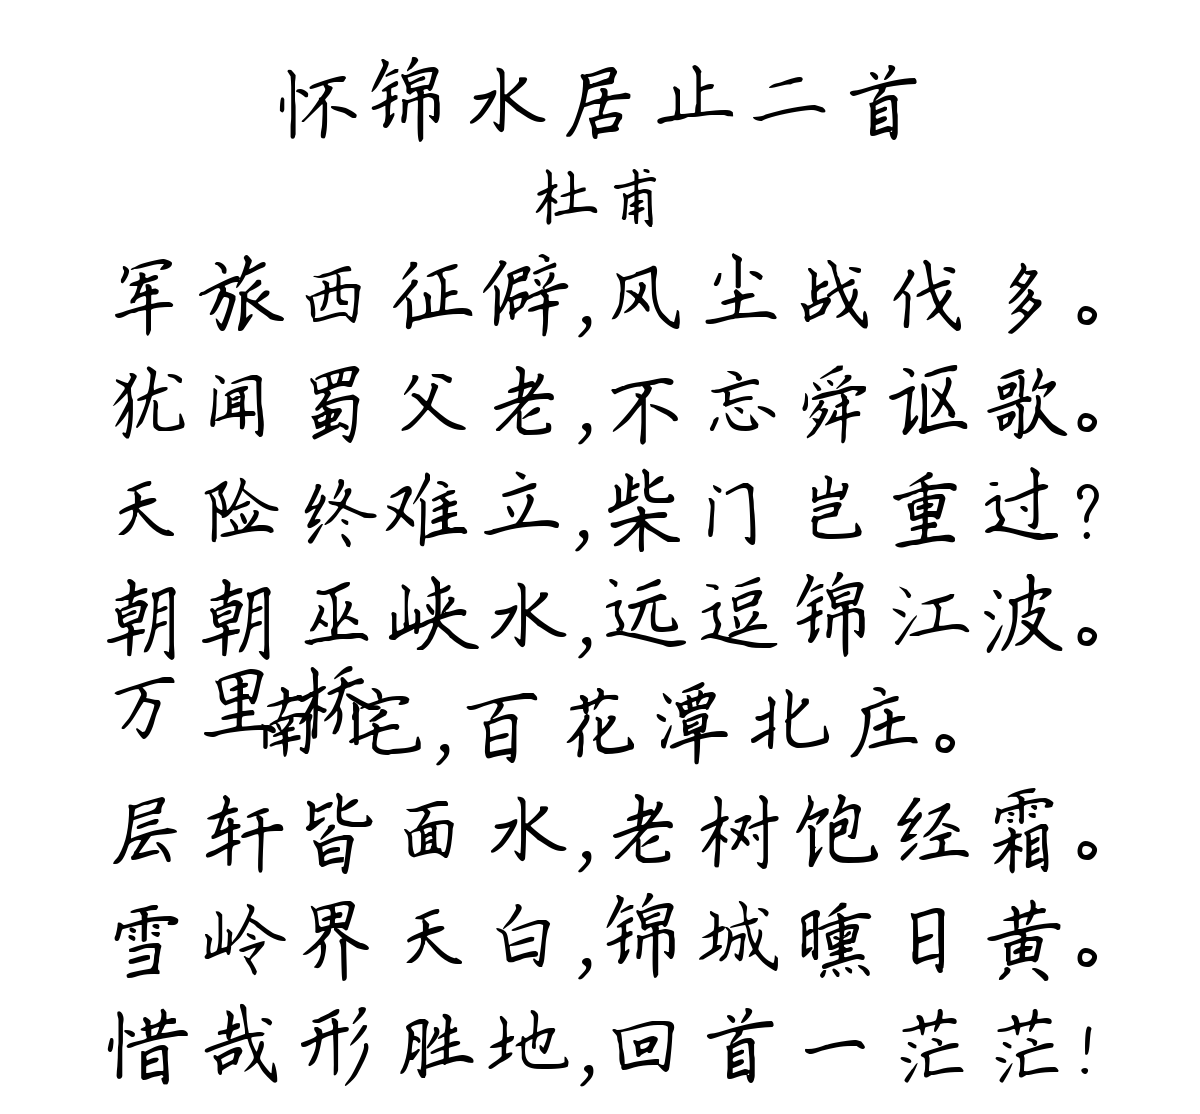 怀锦水居止二首
杜甫
军旅西征僻,风尘战伐多。
犹闻蜀父老,不忘舜讴歌。
天险终难立,柴门岂重过?
朝朝巫峡水,远逗锦江波。
万里桥南宅,百花潭北庄。
层轩皆面水,老树饱经霜。
雪岭界天白,锦城曛日黄。
惜哉形胜地,回首一茫茫!